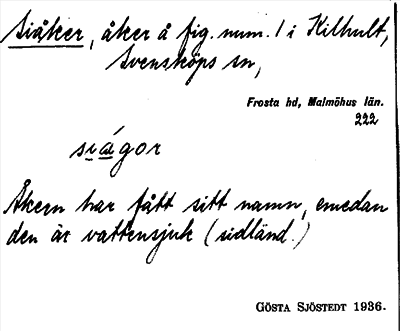 Siåker, åker å fig. num. 1 i Killhult,
Svensköps sn,
Frosta hd, Malmöhus län.
222
siågor
Åkern har fått sitt namn, emedan
den är vattensjuk (sidländ.)
GÖSTA SJÖSTEDT 1936.